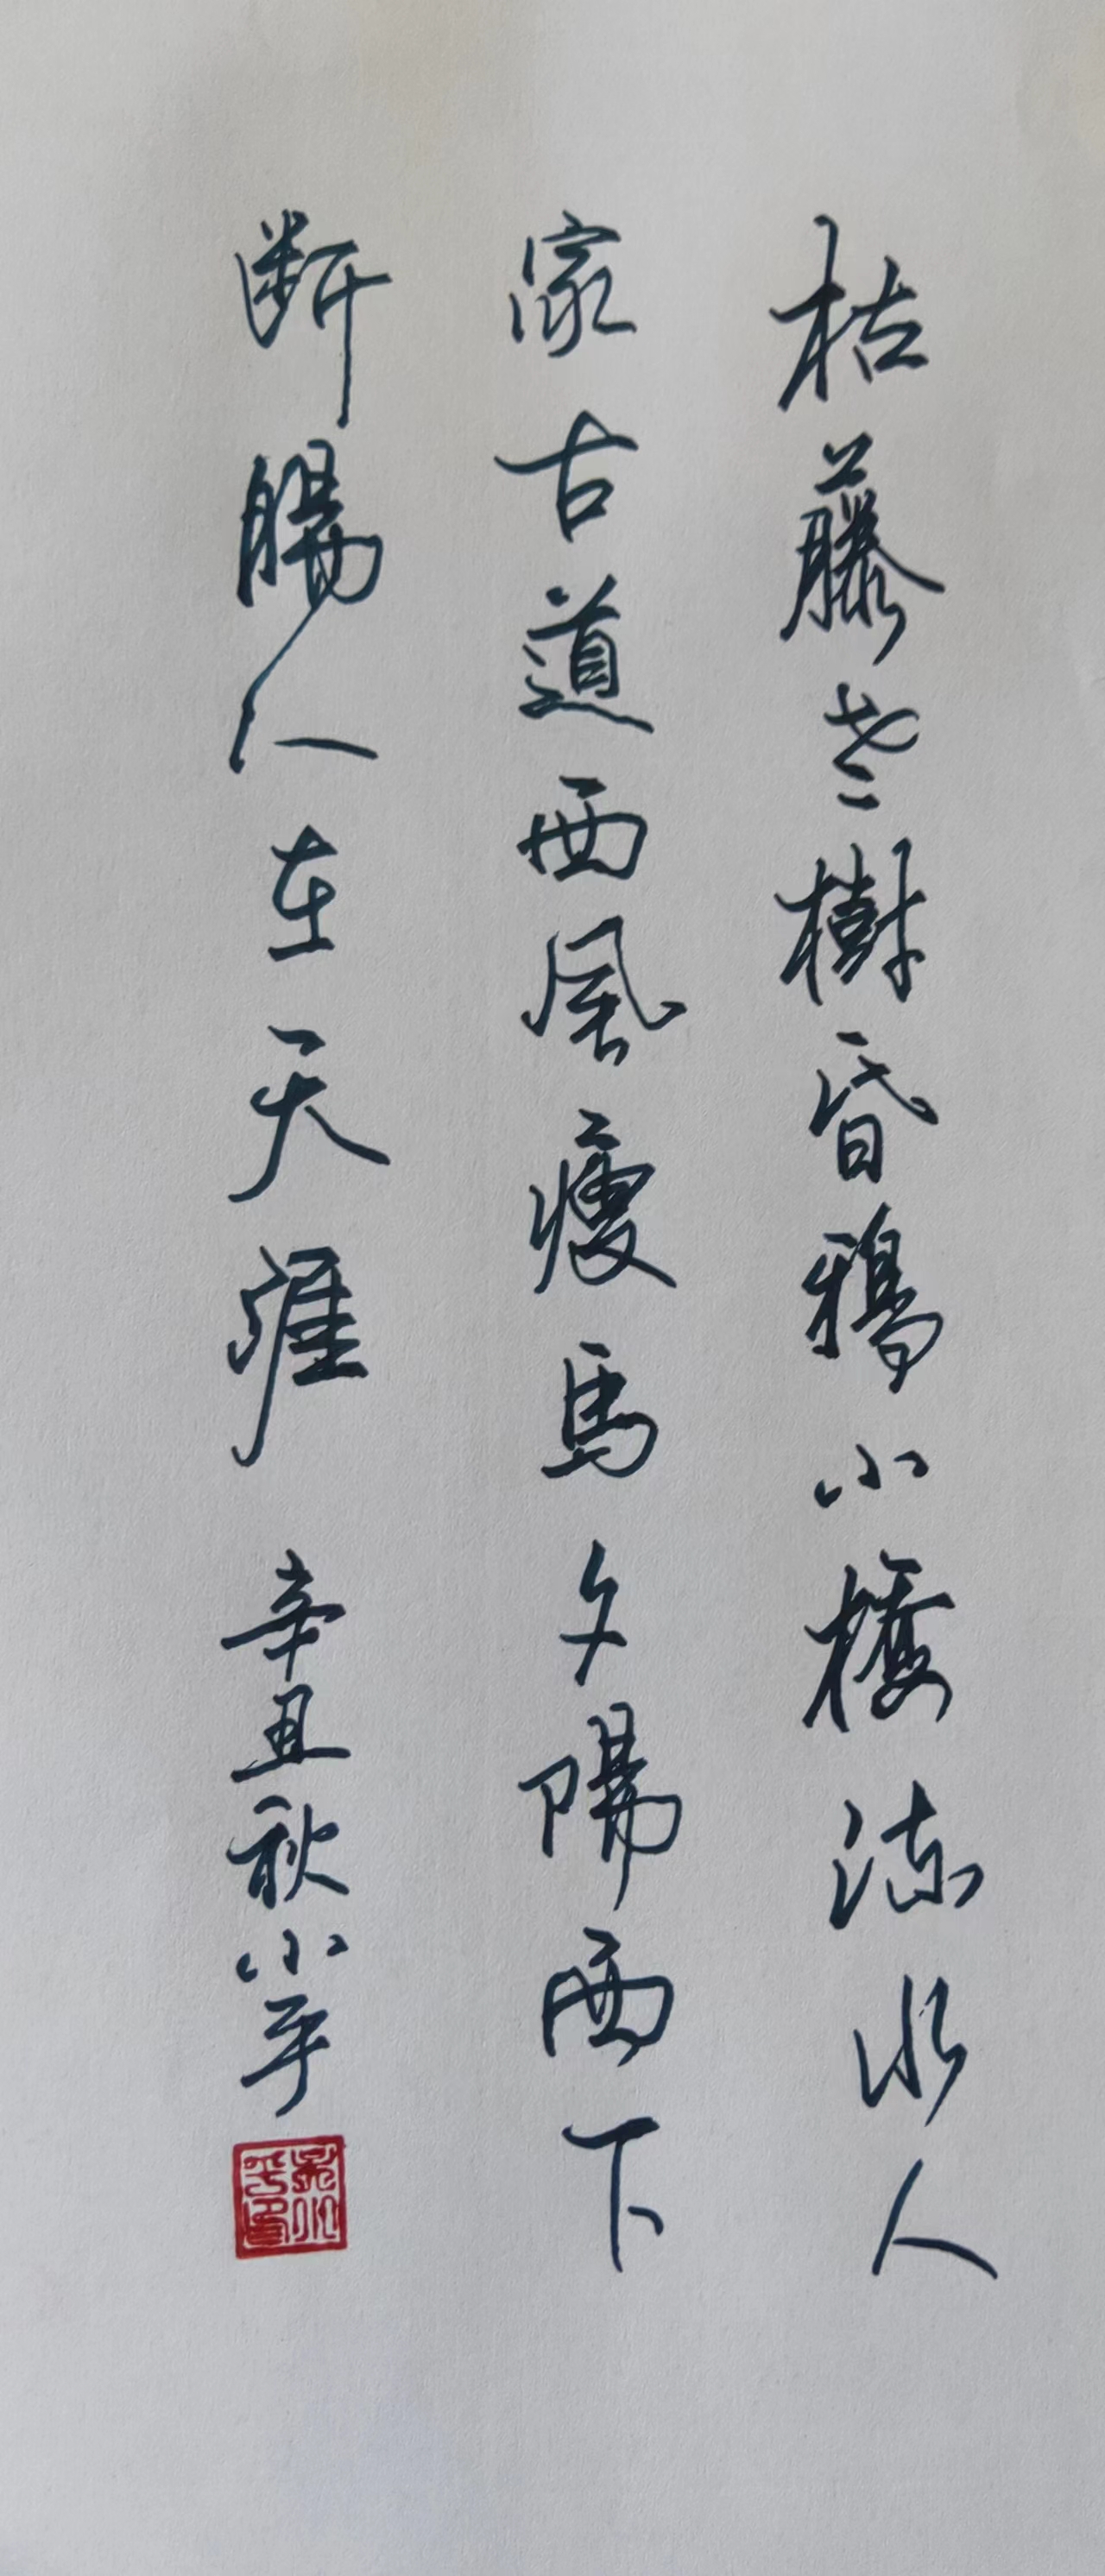 枯藤老樹昏鴉小橋流水人
家古道西風瘦馬夕陽西下
断腸人在天涯 辛丑秋小平